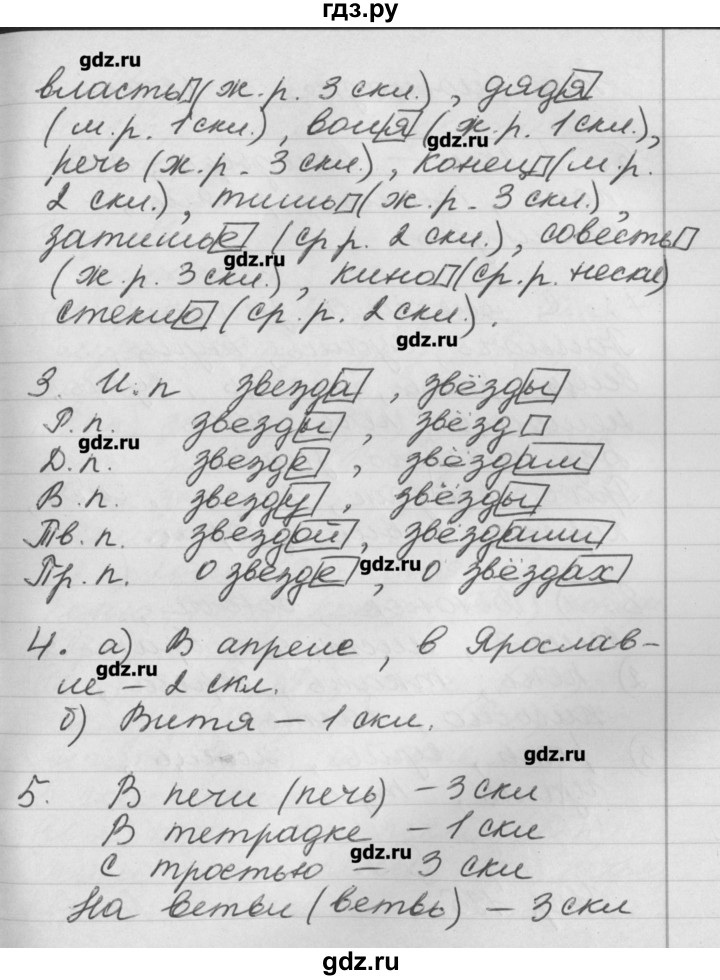 гдз.ру
gdz.ru
власть (ж.р. 3 скл.), дядя
(м.р. 1 скл.), воля (ж.р. 1 скл.),
gdz.ru
печь (ж.р. 3 скл.), конец (м.р.
2 скл.), тишь (ж.р. 3 скл.),
затишье (ср.р. 2 скл.), совесть
gdz.ru
(ж.р. 3 скл.), кино (ср.р. нескл)
стекло (ср.р. 2 скл.).
gdz.ru
3. И.п звезда, звёзды
Р.п. звезды, звёзд
gdz.ru
Д.п. звезде, звёздам
В.п. звезду, звёзды
Тв.п. звездой, звёздами
Пр.п. о звезде, о звёздах
gdz.ru
4. а) В апреле, в Ярослав-
gdz.ru
ле – 2 скл.
б) Витя – 1 скл.
gdz.ru
5. В печи (печь) – 3 скл
В тетрадке – 1 скл
С тростью – 3 скл
gdz.ru
На ветви (ветвь) – 3 скл
gdz.ru